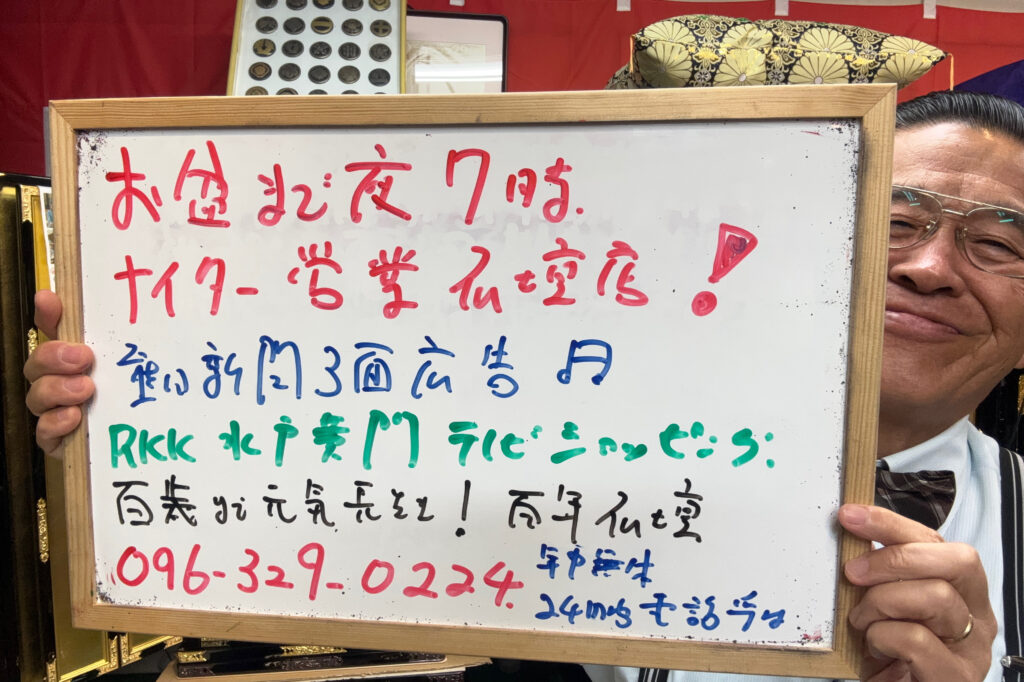 お盆まで夜7時
ナイター営業仏壇店!
新聞3面広告
RKK 水戸黄門 テレビショッピング
百歳まで元気長生き! 百年仏壇
096-329-0224
年中無休
24時間電話受付